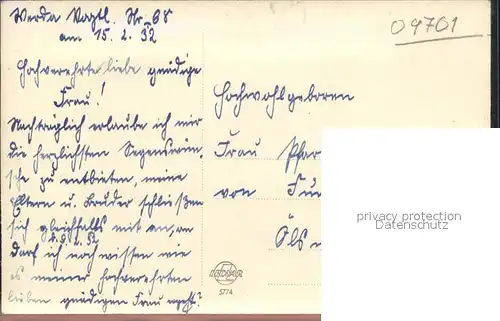 Werda Vogtl. Nr. 68
am 15. 2. 32
Hochverehrte liebe gnädige
Frau!
Nachträglich erlaube ich mir
die herzlichsten Segenswün-
sche zu entbieten, meine
Eltern u. Bruder schließen
sich gleichfalls mit an, am
darf ich noch wissen wie
es meiner hochverehrten
lieben gnädigen Frau geht?
09701
Hochwohlgeboren
Frau Pfar
von
Öls
privacy protection
Datenschutz
5774